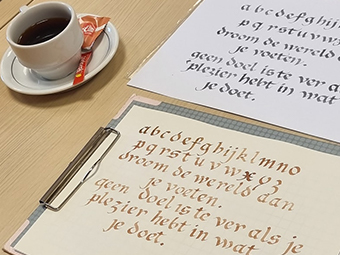 abcdefghijklmn
pqrstuvwxyz
droom de wereld
je voeten.
geen doel is te ver als je
plezier hebt in wat
je doet.
abcdefghijklmno
pqrstuvwxyz
droom de wereld aan
je voeten.
geen doel is te ver als je
plezier hebt in wat
je doet.